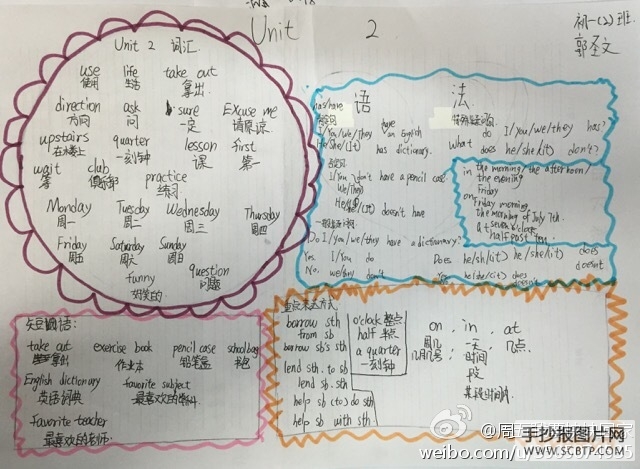 Unit 2
初一(2)班
郭圣文
Unit 2 词汇
use life take out
使用 生活 拿出
direction ask sure Excuse me
方向 问 一定 请原谅
upstairs quarter lesson first
在楼上 一刻钟 课 第一
wait club practice
等 俱乐部 练习
Monday Tuesday Wednesday Thursday
周一 周二 周三 周四
Friday Saturday Sunday
周五 周六 周日
funny question
好笑的 问题
语法
has/have
肯定句
I/You/we/they have an English
He/She/(It) has dictionary.
特殊疑问句
do I/you/we/they has?
What does he/she/(it) don't?
否定句
I/You don't have a pencil case
We/They
He/She/(It) doesn't have
一般疑问句
Do I/you/we/they have a dictionary?
Yes I/You do
No, we/they don't
Does he/sh/(it) he/she/(it) does
doesn't
Yes he/she/(it) does
in the morning/the afternoon/
the evening
Friday
on Friday morning.
The morning of July 7th.
at seven o'clock
half past ten
短语:
take out exercise book pencil case schoolbag
拿出 作业本 铅笔盒 书包
English dictionary favorite subject
英语词典 最喜欢的学科
Favorite teacher
最喜欢的老师.
重点表达方式
borrow sth
from sb
borrow sb's sth
lend sth. to sb
lend sb. sth
help sb (to) do sth
help sb with sth
o'clock 整点
half 半点
a quarter
一刻钟
on, in, at
周几 一天, 几点.
几月几号 时间
段
某段时间
手抄报图片网
WWW.SCBTP.COM
weibo.com/u/